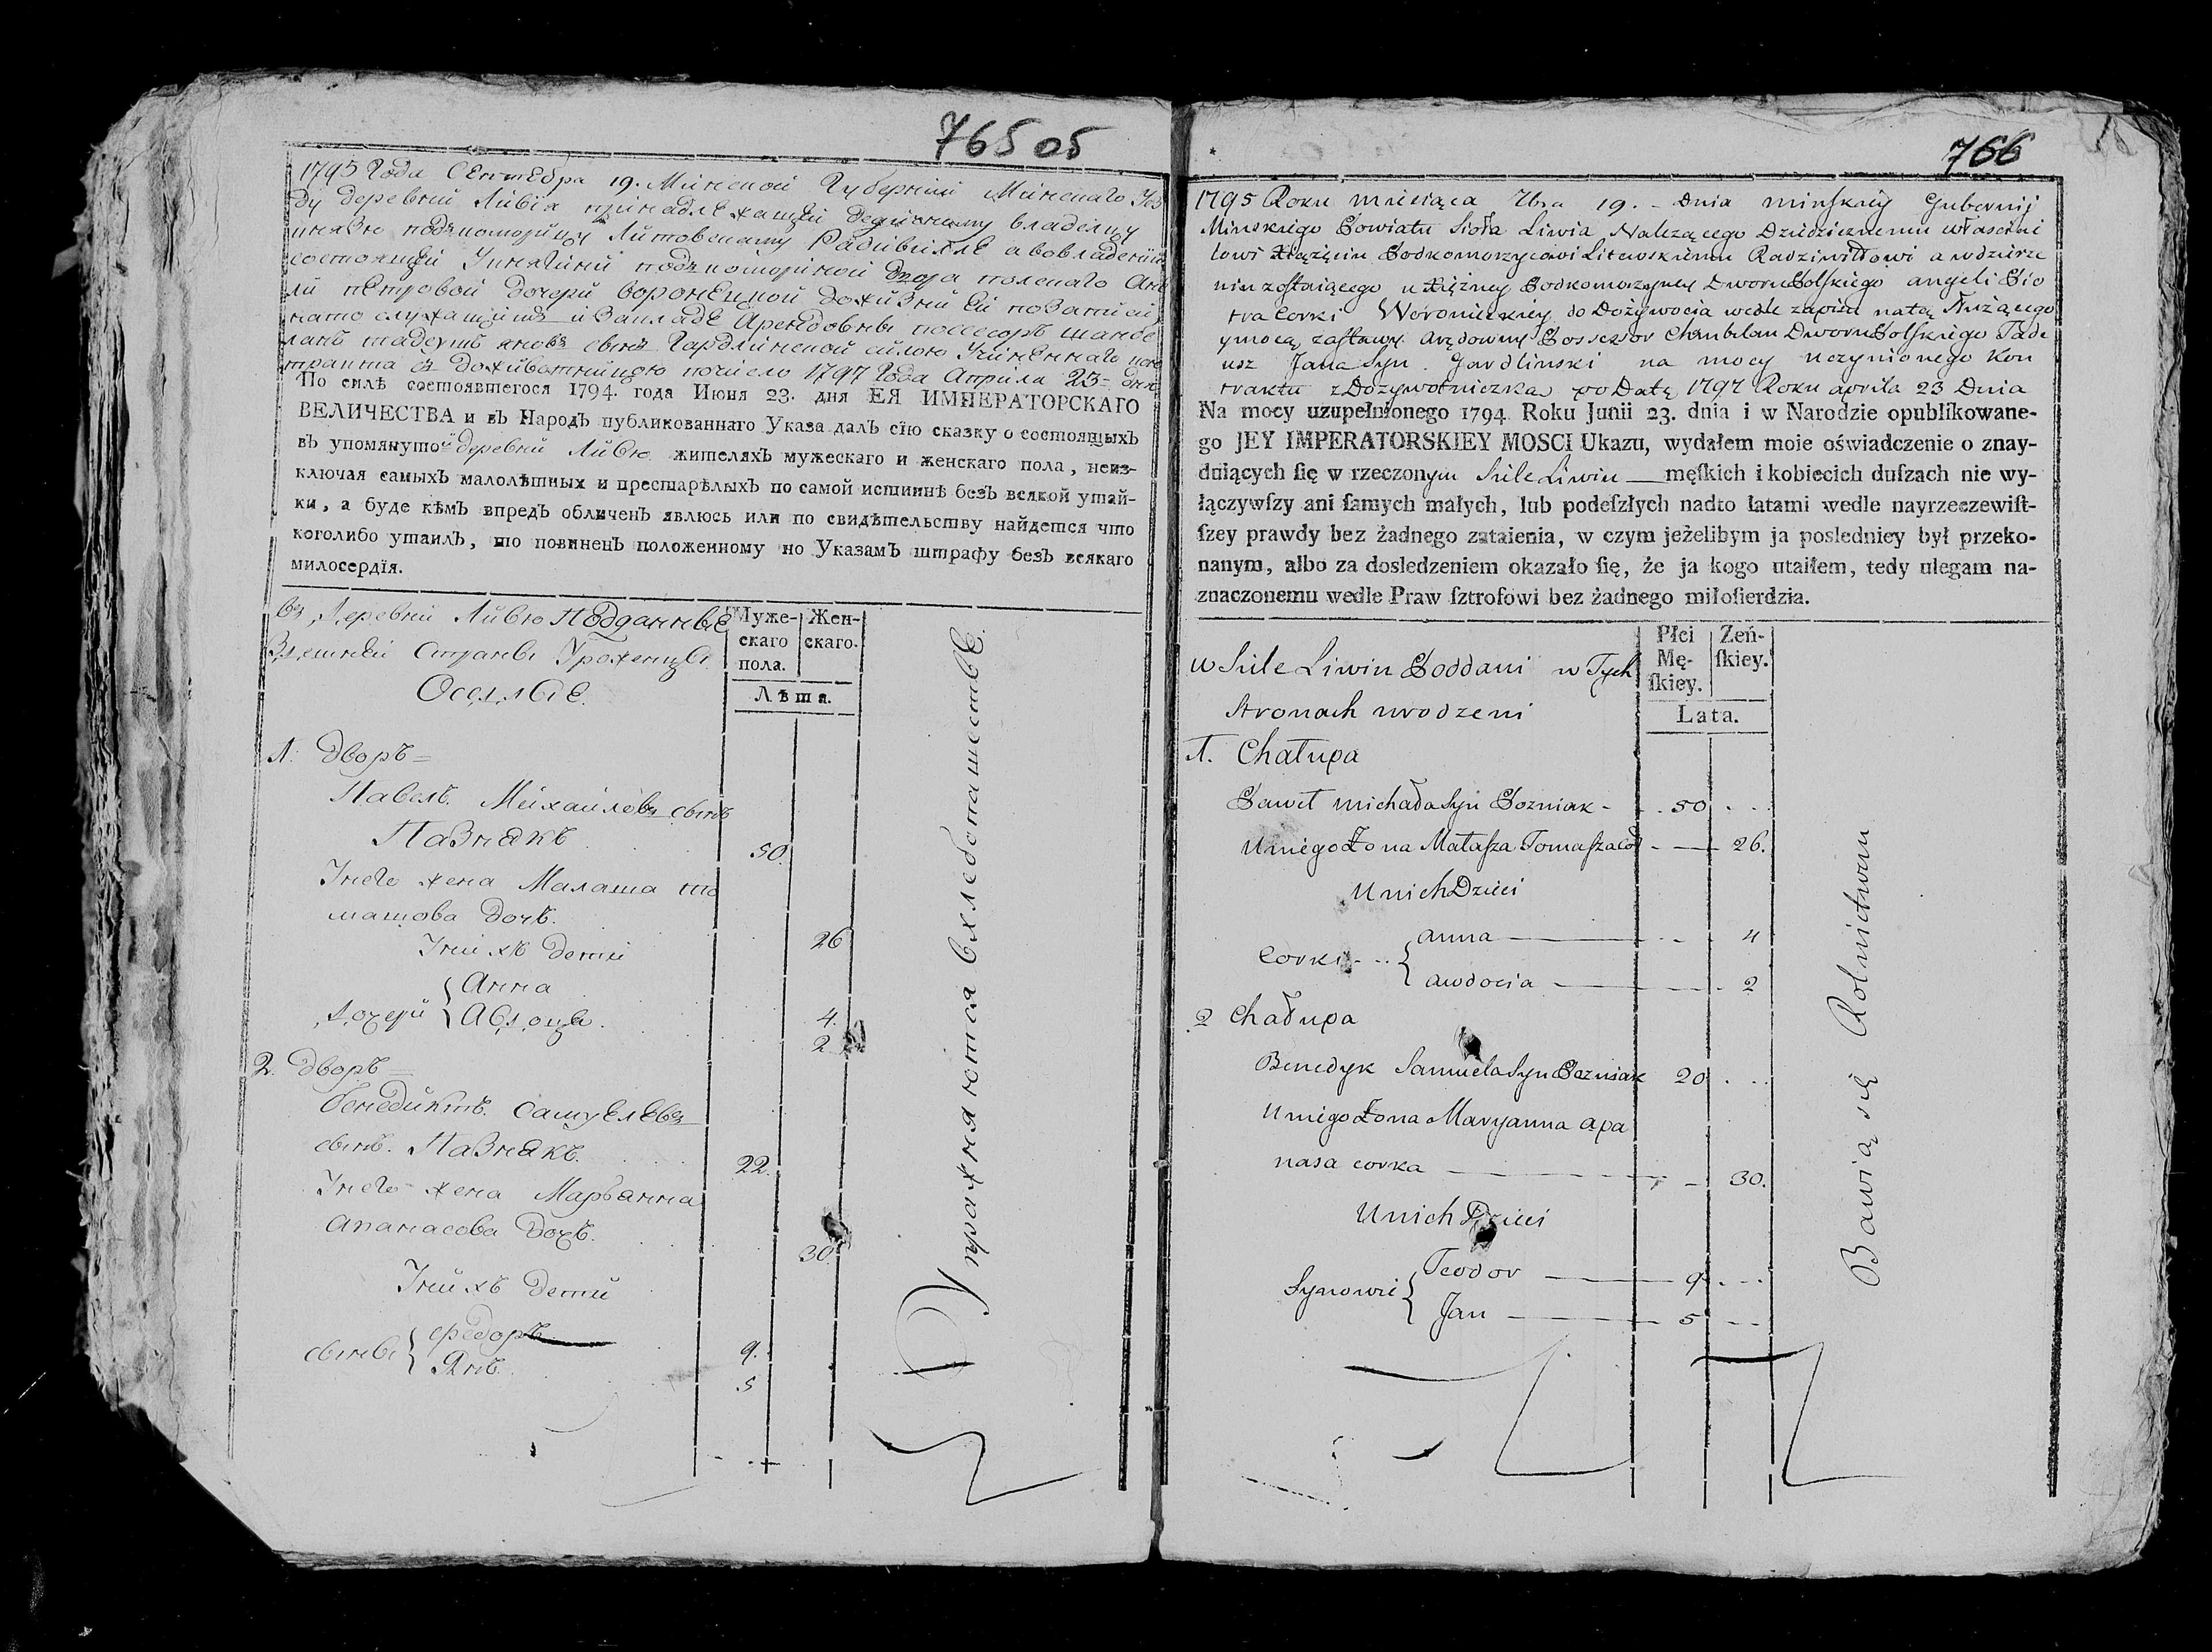 765 об
1795 Года Сентебра 19. Минской Губерний Минскаго Уез
ду деревни Ливія принадлежащей дедичному владелцу
князю подкоморицу Литовскому Радивиллу а вовладений
состоящей Укнягини подкоморіной двора полскаго Анге
ли петровой дочери воронецкой доживний ей позаписи
нато служащимъ и Закладе Арендовны поссесоръ шамбе
ланъ тадеушъ яновъ сынъ Гардлинской силою Учиненнаго кон
тракта съ доживотницою почисло 1797 Года Априля 23- дня
По силѣ состоявшегося 1794. года Июня 23. дня ЕЯ ИМПЕРАТОРСКАГО
ВЕЛИЧЕСТВА и въ Народъ публикованнаго Указа далъ сїю сказку о состоящыхъ
въ упомянутой деревни Ливю жителяхъ мужескаго и женскаго пола, неиз-
ключая самыхъ малолѣтныхъ и престарѣлыхъ по самой истиннѣ безъ всякой утай-
ки, а буде кѣмъ впредъ обличенъ явлюсь или по свидѣтельству найдется что
коголибо утаилъ, то повиненъ положенному по Указамъ штрафу безъ всякаго
милосердїя.
въ Деревни Ливю Подданные
Здешней Страны Уроженцы
Оседлые.
Муже- Жен-
скаго скаго.
пола.
Лѣта.
1. дворъ
Павелъ Михайловъ сынъ
Пазнякъ 50.
Унего жена Малаша то
машова дочь. 26
Уних детй
дочери { Анна 4.
Авдоця. 2
2. дворъ
бенедиктъ Самуелевъ
сынъ Пазнякъ. 22.
Унего жена Марьянна
апанасова дочь. 30.
Унихъ детй
сыны { федоръ 9.
Янъ. 5
Упражняются в хлебопашестве.
766
1795 Roku miesiąca 7bra 19. - Dnia minskiey Gubernij
Minskiego Powiatu Sioła Liwia Nalezącego Dziedzicznemu właścicie
lowi Xiążęciu Podkomorzycowi Litewskiemu Radziwiłłowi a wdzierze
niu zostaiącego u Xiężney Podkomorzyney Dworu Polskiego angeli Pio
tra Corki Woronieckiey do Dożywocia wedle zapisu natą służącego
ymocą zastawy Arędowny Possessor Chambelan Dworu Polskiego Tade
usz Jana Syn Gardlinski na mocy uczynionego Kon
traktu z Dożywotniczką po Datą 1797 Roku aprila 23 Dnia
Na mocy uzupełnionego 1794. Roku Junii 23. dnia i w Narodzie opublikowane-
go JEY IMPERATORSKIEY MOSCI Ukazu, wydałem moie oświadczenie o znay-
duiących ſię w rzeczonym Siele Liwiu męſkich i kobiecich duſzach nie wy-
łączywſzy ani ſamych małych, lub podeſzłych nadto latami wedle nayrzeczewiſt-
ſzey prawdy bez żadnego zataienia, w czym jeżelibym ja posledniey był przeko-
nanym, albo za dosledzeniem okazało ſię, że ja kogo utaiłem, tedy ulegam na-
znaczonemu wedle Praw ſztrofowi bez żadnego miłoſierdzia.
w Siele Liwiu Poddani w Tych
stronach urodzeni
Płci Zeń-
Mę- ſkiey.
ſkiey.
Lata.
1. Chałupa
Paweł michała Syn Pozniak - 50
U niego Żona Małasza Tomasza cor 26.
U nich Dzieci
Corki { anna 4
awdocia 2
2 Chałupa
Benedyk Samuela Syn Pozniak 20
U niego Żona Maryanna apa
nasa corka 30.
U nich Dzieci
Synowie { Teodor 9
Jan 5
Bawią się Rolnictwem